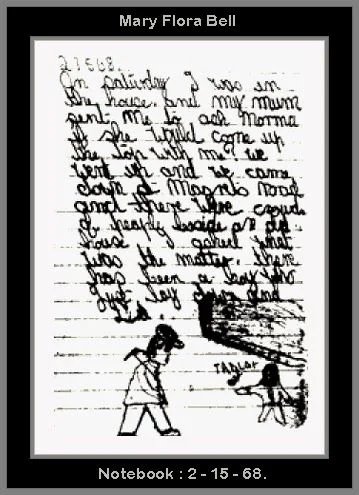 Mary Flora Bell
27568.
On saturday I was in
the house. and my mum
sent Me to ask Norma
if she Would come up
the top with me. we
went up and we came
down a Magrets Road
and there were crouds
of beaply beside an old
house. I asked what
was the matter. there
has been a boy who
Just lay down and
Died.
TABLOT
Notebook : 2 - 15 - 68.